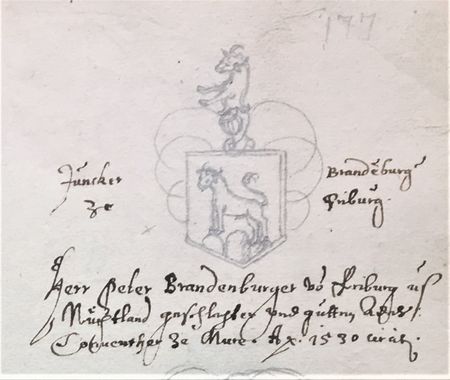 177
Juncker Brandeburg
ze Friburg.
Herr Peter Brandenburger vo Friburg us
Nüchtland geschlechter und gutten Adels.
Conventher ze Mure. Ax. 1530